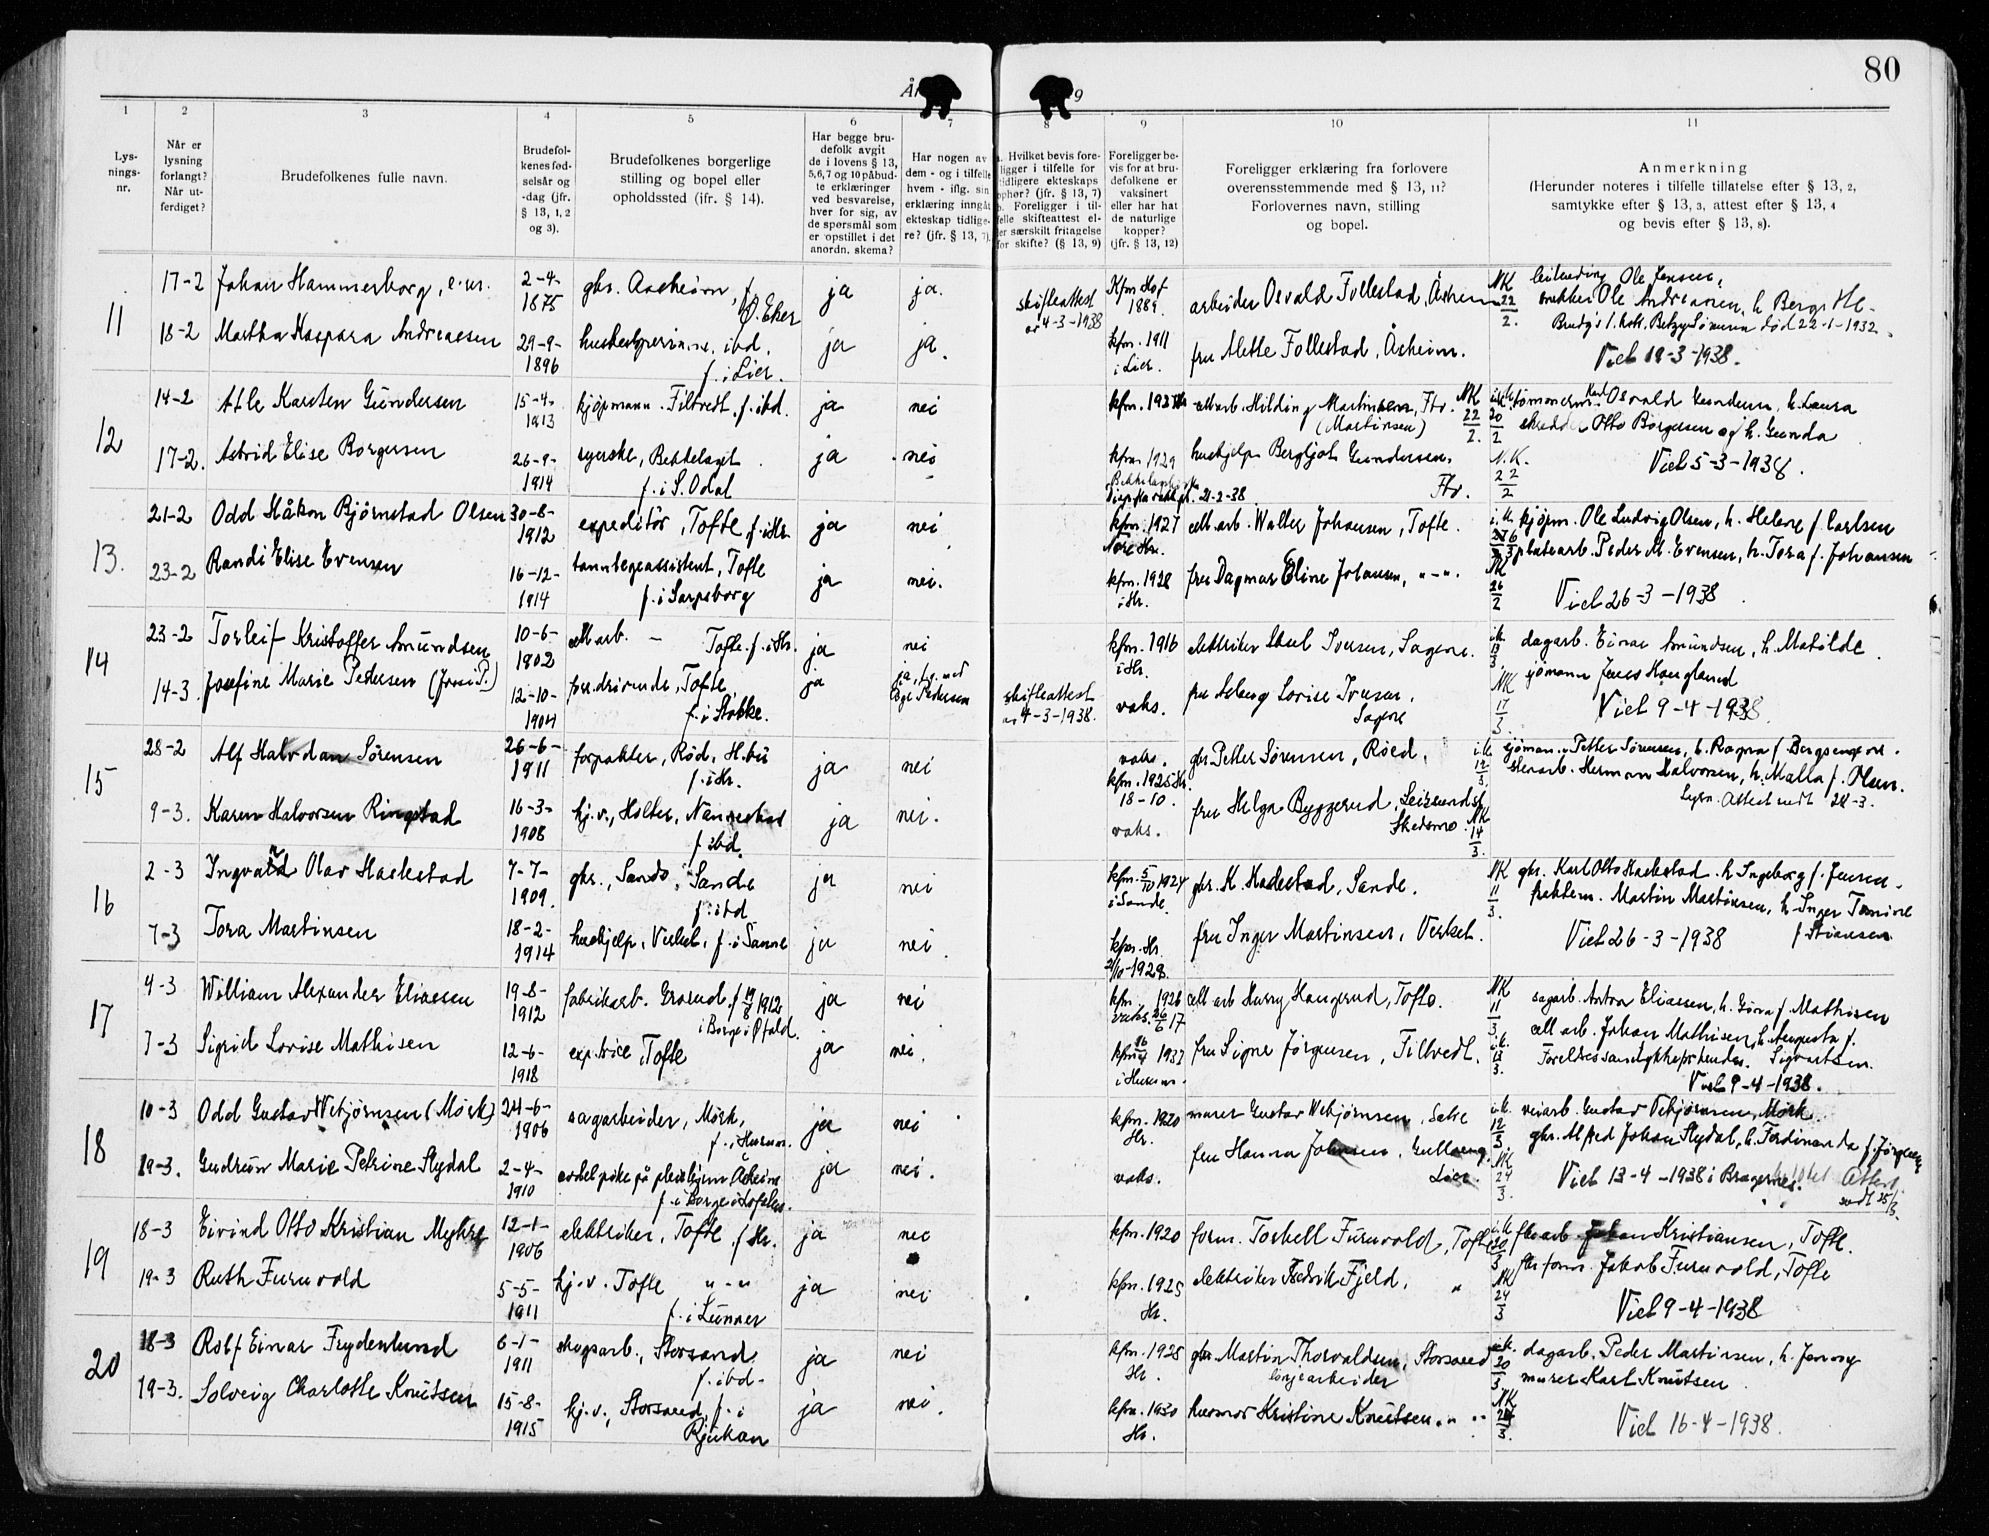 80
År
9
1
2
3
4
5
6
7
8
9
10
11
Lys-
nings-
nr.
Når er
lysning
forlangt?
Når ut-
ferdiget?
Brudefolkenes fulle navn.
Brudefol-
kenes fød-
selsår og
-dag (jfr.
§ 13, 1, 2
og 3).
Brudefolkenes borgerlige
stilling og bopel eller
opholdssted (jfr. § 14).
Har begge bru-
defolk avgit
de i lovens § 13,
5,6,7 og 10 påbud-
te erklæringer
ved besvarelse,
hver for sig, av
de spørsmål som
er opstillet i det
anordn. skema?
Har nogen av
dem - og i tilfelle
hvem - iflg. sin
erklæring inngått
ekteskap tidlige-
re? (jfr. § 13, 7).
a. Hvilket bevis fore-
ligger i tilfelle for
tidligere ekteskaps
ophør? (jfr. § 13, 7)
b. Foreligger i til-
felle skifteattest el-
ler særskilt fritagelse
for skifte? (§ 13, 9)
Foreligger be-
vis for at bru-
defolkene er
vaksinert
eller har hat
de naturlige
kopper?
(jfr. § 13, 12)
Foreligger erklæring fra forlovere
overensstemmende med § 13, 11?
Forlovernes navn, stilling
og bopel.
Anmerkning
(Herunder noteres i tilfelle tillatelse efter § 13, 2,
samtykke efter § 13, 3, attest efter § 13, 4
og bevis efter § 13, 8).
11
17-2 Johan Hammerborg, e.m. 2-4-1875 gbr. Aasheim, f. Ø. Eker ja ja. skifteattest av 4-3-1938 Kfm Hof 1889. arbeider Osvald Follestad, Åsheim NK 22/2. Ole Jensen,
Ole Andreasen, h. Berge
Brudg's 1. hustr. død 22-1-1932.
18-2 Martha Kaspara Andreasen 29-9-1896 ibd. f. i Lier. ja ja. kfm. 1911 i Lier. fru Alette Follestad, Åsheim. Viet 19-3-1938.
12
14-2 Atle Karsten Gundersen 15-4-1913 kjøpmann. Filtvedt. f. ibd. ja nei Hilding Martinsen, Ftv. (Martinsen) NK 22/2. Osvald Gundersen, h. Laura
Otto Borgersen og h. Gunda
17-2. Astrid Elise Borgersen 26-9-1914 syerske, Bekkelaget f. i S. Odal ja nei kfm. 1929 21-2-38. hushjelp Bergljot Gundersen, Ftv. N.K. 22/2 Viet 5-3-1938.
13.
21-2 Odd Håkon Bjørnstad Olsen 30-8-1912 expeditør, Tofte f. i Hr. ja nei kfm. 1927 cell.arb. Walter Johansen, Tofte. kjøpm. Ole Ludvig Olsen, h. Helene f. Carlsen
Peder M. Evensen, h. Tora f. Johansen
23-2 Randi Elise Evensen 16-12-1914 tannlegeassistent, Tofte f. i Sarpsborg ja nei. kfm. 1928 i Hr. fru Dagmar Eline Johansen, "-". NK 26/2 Viet 26-3-1938
14
23-2 Torleif Kristoffer Amundsen 10-6-1902 cell.arb. - Tofte. f. i Hr. ja nei kfm. 1916 i Hr. elektriker Iversen, Sagene. dagarb. Einar Amundsen, h. Matilde
14-3. Josefine Marie Pedersen 12-10-1904 Tofte, f. i Stokke. ja ja, Pedersen skifteattest av 4-3-1938. vaks. fru Lovise Iversen, Sagene NK 17/3. Jens Haugland
Viet 9-4-1938.
15
28-2 Alf Halvdan Sørensen 26-6-1911 forpakter, Rød, f. i Hr. ja nei vaks. kfm. 1925 Hr. 18-10. gbr. Petter Sørensen, Røed, i.k. 12/3. sjømann Petter Sørensen, h. Ragna f. Bergsengen
Herman Halvorsen, h. Malla f. Olsen.
Lysn. Attest sendt 24-3.
9-3. Karen Halvorsen Ringstad 16-3-1908 hj.v., Holter, Nannestad f. ibd. ja nei. vaks. fru Helga Byggerud, Leirsund st. Skedsmo. NK 14/3.
16
2-3 Ingvald Olav Haslestad 7-7-1909. gbr., Sando, Sande f. ibd ja nei kfm. 5/10 1924 i Sande. gbr. K. Haslestad, Sande. NK 11/3. gbr. Karl Otto Haslestad. h. Ingeborg f. Jensen.
Martin Martinsen, h. Inger Tomine
f. Stiansen
7-3 Tora Martinsen 18-2-1914 hushjelp, Verket, f. i Sande ja nei. kfm. Hr. 2/10-1928. fru Inger Martinsen, Verket. Viet 26-3-1938
17
4-3 William Alexander Eliassen 19-8-1912 fabrikarb. Grorud. f. 19/8 1912 i Borge i Øfold. ja nei kfm. 1926 vaks. 26/6 17 cell.arb Harry Haugerud, Tofte. NK 11/3. sagarb. Anton Eliassen, h. Gina f. Mathisen
cell.arb. Johan Mathisen, h. Augusta f.
Sigvartsen.
7-3 Sigrid Lovise Mathisen 12-6-1918 exp.trice, Tofte ja nei. kfm. 1933 i Hurum. fru Signe Jørgensen, Filtvedt. i.k. 13/3. Viet 9-4-1938.
18
10-3 Odd Gustav Vebjørnsen (Mørk) 24-6-1906 sagarbeider, Mørk, f. i Hurum. ja nei kfm. 1920 Hr. murer Gustav Vebjørnsen, Sætre i.k. 12/3 veiarb. Gustav Vebjørnsen, Mørk.
gbr. Alfred Johan Slydal, h. Ferdinanda f. Jørgensen
19-3. Gudrun Marie Petrine Slydal 2-4-1910 Åsheim f. i Borge i Lofoten. ja nei. vaks. fru Hanna Johansen, Lier. NK 24/3. Viet 13-4-1938 i Bragernes. Attest sendt 25/3.
19
18-3 Eivind Otto Kristian Myhre 12-1-1906 elektriker, Tofte f. Hr. ja nei kfm. 1920 form. Torkell Furuvold, Tofte i.k. 20/3 Johan Kristiansen, Tofte.
form. Jakob Furuvold, Tofte
19-3 Ruth Furuvold 5-5-1911 hj.v. Tofte "-" f. i Lunner ja nei kfm. 1925 Hr. elektriker Fredrik Fjeld, " NK 24/3 Viet 9-4-1938
20
18-3 Rolf Einar Frydenlund 6-1-1911 skogsarb., Storsand f. ibd- ja nei kfm. 1925 Hr. gbr. Martin Thorvaldsen, Storsand i.k. 20/3 dagarb. Peder Martinsen, h. Jenny
murer Karl Knutsen
19-3. Solveig Charlotte Knutsen 15-8-1915 hj.v., Storsand, f. i Rjukan ja nei. kfm. 1930 Hr. husmor Kristine Knutsen, " " NK Viet 16-4-1938.